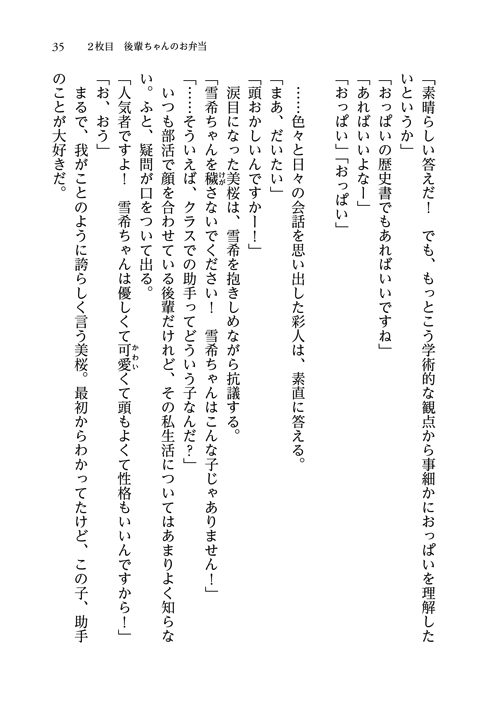 35　２枚目　後輩ちゃんのお弁当
「素晴らしい答えだ！　でも、もっとこう学術的な観点から事細かにおっぱいを理解した
いというか」
「おっぱいの歴史書でもあればいいですね」
「あればいいよなー」
「おっぱい」「おっぱい」
……色々と日々の会話を思い出した彩人は、素直に答える。
「まあ、だいたい」
「頭おかしいんですかー！」
涙目になった美桜は、雪希を抱きしめながら抗議する。
「雪希ちゃんを穢さないでください！　雪希ちゃんはこんな子じゃありません！」
「……そういえば、クラスでの助手ってどういう子なんだ？」
いつも部活で顔を合わせている後輩だけれど、その私生活についてはあまりよく知らな
い。ふと、疑問が口をついて出る。
「人気者ですよ！　雪希ちゃんは優しくて可愛くて頭もよくて性格もいいんですから！」
「お、おう」
まるで、我がことのように誇らしく言う美桜。最初からわかってたけど、この子、助手
のことが大好きだ。
けが
かわい